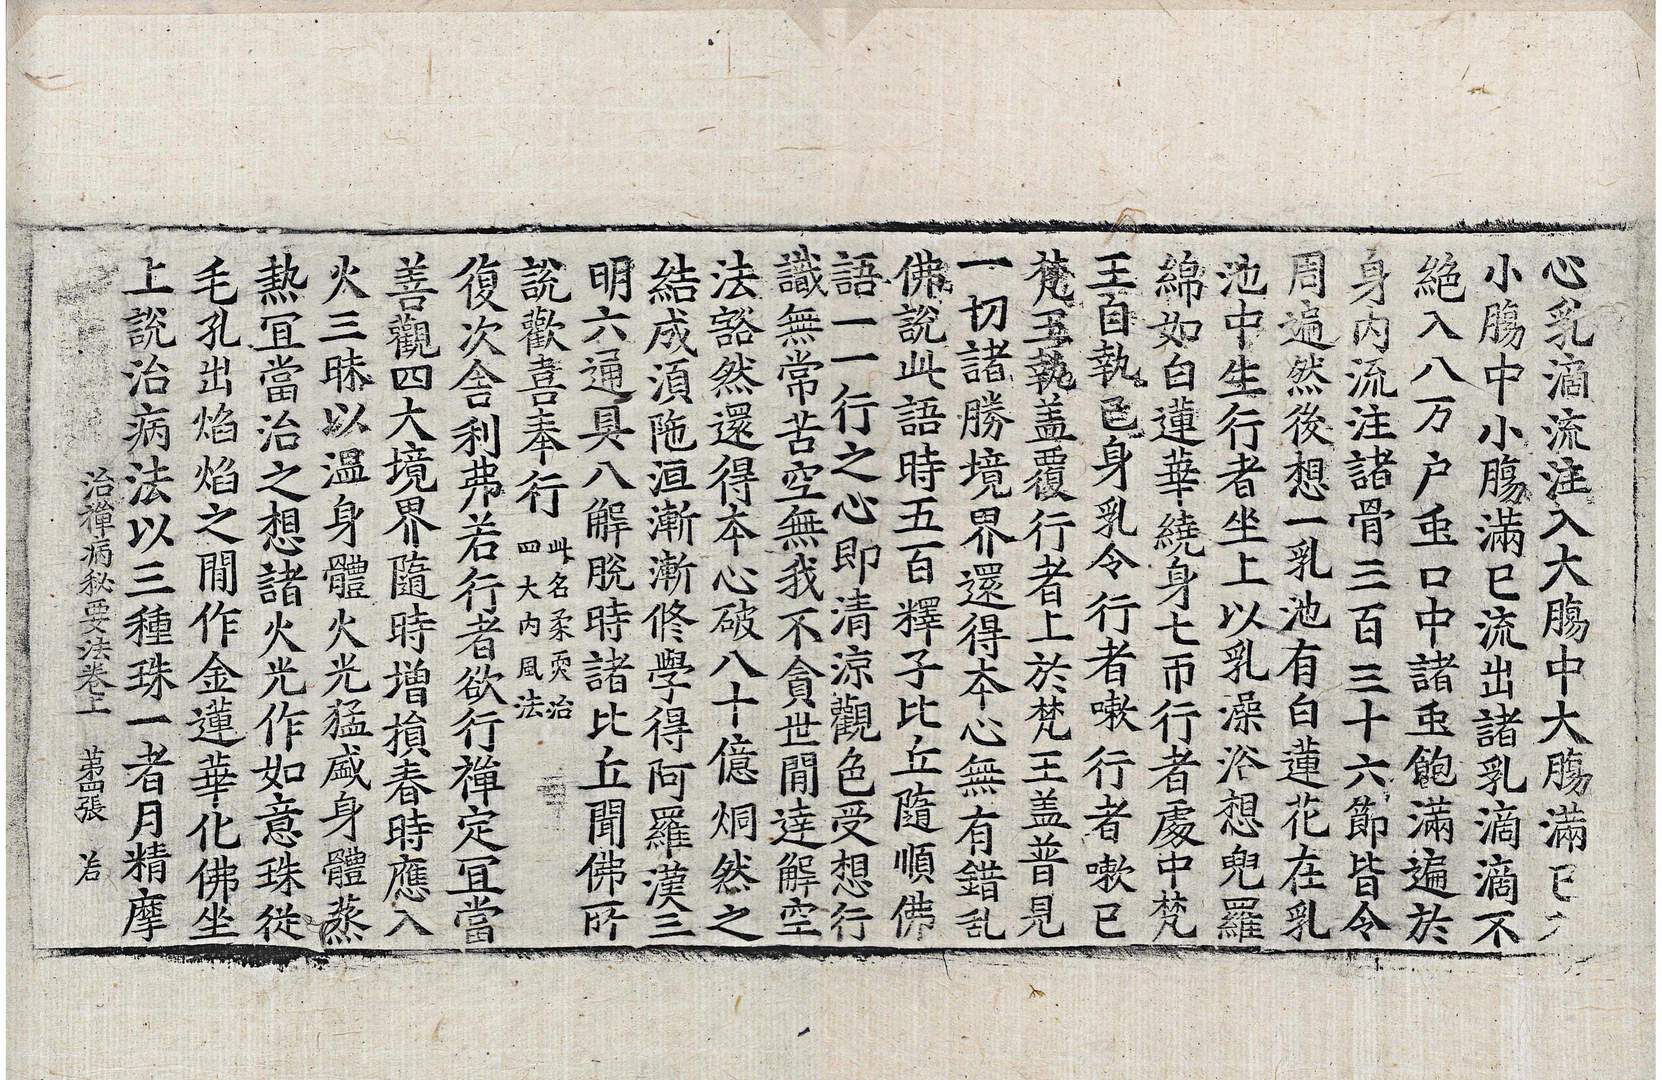 心乳滴流注入大膓中大膓滿已入
小膓中小膓滿已流出諸乳滴滴不
絕入八万户䖝口中諸䖝飽滿遍於
身內流注諸骨三百三十六節皆令
周遍然後想一乳池有白蓮花在乳
池中生行者坐上以乳澡浴想兜羅
綿如白蓮華繞身七帀行者處中梵
王自執已身乳令行者嗽行者嗽已
梵王執盖覆行者上於梵王盖普見
一切諸勝境界還得夲心無有錯乱
佛說此語時五百釋子比丘隨順佛
語一一行之心即清涼觀色受想行
識無常苦空無我不貪世閒達解空
法豁然還得夲心破八十億烔然之
結成湏陁洹漸漸修學得阿羅漢三
明六通具八解脫時諸比丘聞佛所
說歡喜奉行 此名柔耎治四大内風法
復次舍利弗若行者欲行禪定冝當
善觀四大境界隨時增損春時應入
火三昧以温身體火光猛盛身體蒸
熱冝當治之想諸火光作如意珠從
毛孔出焰焰之閒作金蓮華化佛坐
上說治病法以三種珠一者月精摩
治禪病秘要法卷上 第四張 㓉